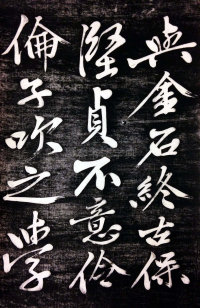 與金石終古保
堅貞不意伶
倫子吹之